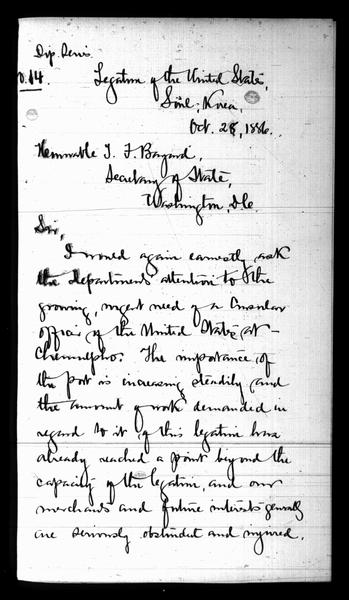 Dip. Series
No. 14.
Legation of the United States,
Söul, Korea,
Oct. 28, 1886.
Honorable T. F. Bayard,
Secretary of State,
Washington, D.C.
Sir,
I would again earnestly ask
the Departments attention to the
growing, urgent need of a Consular
officer of the United States at
Chemulpho. The importance of
the port is increasing steadily and
the amount of work demanded in
regard to it of this legation have
already reached a point beyond the
capacity of the legation, and our
merchants and future interests generally
are seriously obstructed and injured.